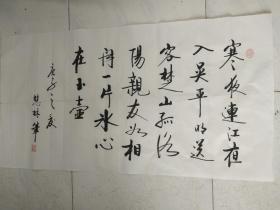 寒夜連江夜
入吴平明送
客楚山孤洛
陽親友如相
问一片冰心
在玉壺
庚子之夏